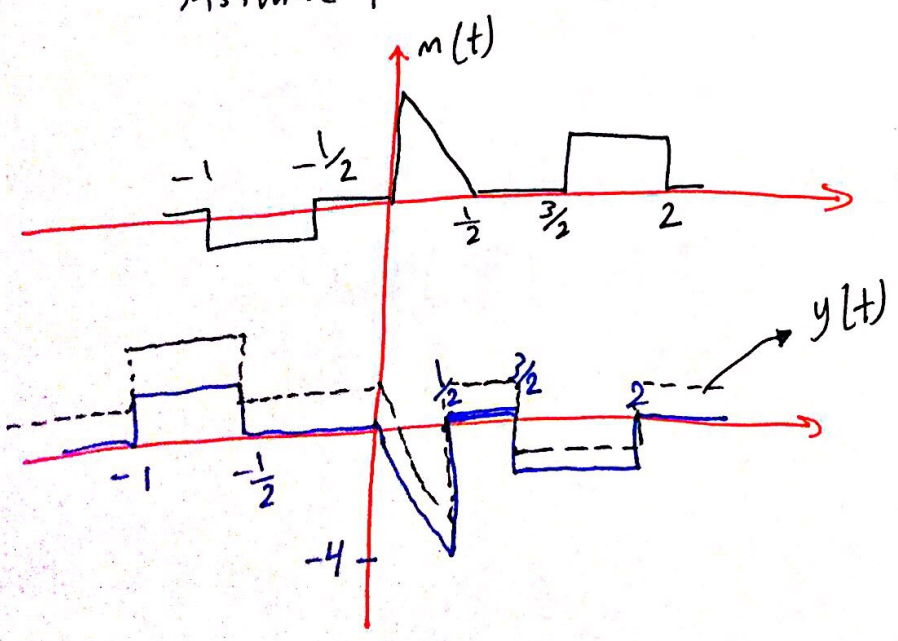 m(t)
-1
-1/2
1/2
3/2
2
y(t)
1/2
3/2
2
-1
-1/2
-4